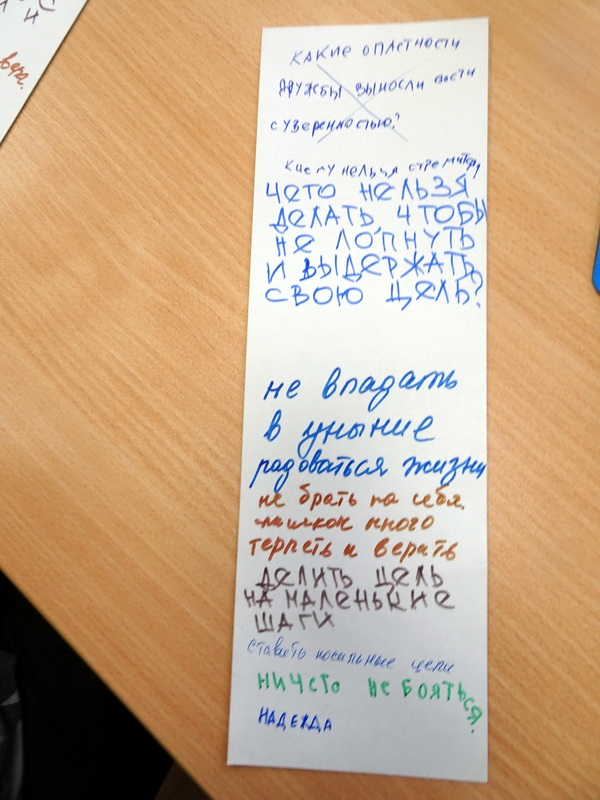 КАКИЕ ОПАСТНОСТИ
ДРУЖБЫ ВЫНОСЛИ вости
с уверенностью?
нельзя
ЧЕГО НЕЛЬЗЯ
ДЕЛАТЬ ЧТОБЫ
НЕ ЛОПНУТЬ
И ВЫДЕРЖАТЬ
СВОЮ ЦЕЛЬ?
не впадать
в уныние
радоваться жизни
не брать на себя
много
терпеть и верить
ДЕЛИТЬ ЦЕЛЬ
НА МАЛЕНЬКИЕ
ШАГИ
ставить посильные цели
НИЧЕГО НЕ БОЯТЬСЯ.
НАДЕЖДА
вера.